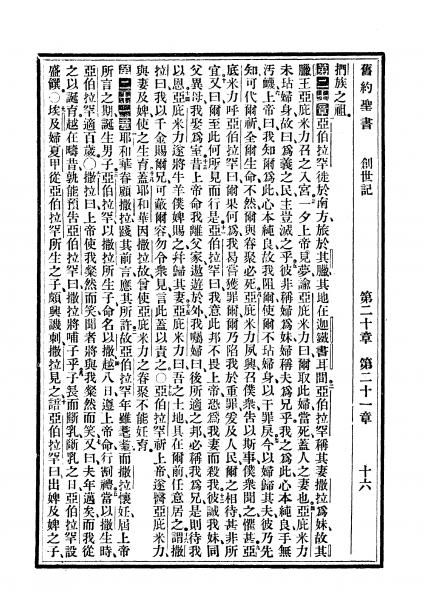 舊約聖書 創世記 第二十章 第二十一章 十六
捫族之祖
第二十章亞伯拉罕徙於南方旅於其臘其地在迦鐵書耳間亞伯拉罕稱其妻撒拉爲妹故其
臘王亞庇米力召之入宮一夕上帝見夢諭亞庇米力曰爾取此婦當死蓋人之妻也亞庇米力
未玷婦身故曰爲義之民主豈滅之乎彼非稱婦爲妹婦稱夫爲兄乎我之爲此心本純良手無
汚衊上帝曰我知爾爲此心本純良故我阻爾使爾不玷婦身以干罪戾今以婦歸其夫彼乃先
知可代爾祈令爾生命不然爾與眷聚必死亞庇米力夙興召僕衆告以斯事僕衆聞之懼甚亞
庇米力呼亞伯拉罕曰爾果何爲我曷嘗獲罪爾爾乃陷我於重罪爰及人民爾之相待甚非所
宜又曰爾至此何所見而行是亞伯拉罕曰我意此邦不畏上帝恐爲我妻而殺我彼誠我妹同
父異母我娶爲室昔上帝命我離父家遨遊於外我囑婦曰後所適之邦必稱我爲兄是則待我
以恩亞庇米力遂將牛羊僕婢賜之幷歸其妻亞庇米力曰吾之土地具在爾前任意居之謂撒
拉曰我以千金賜爾兄可蔽爾容勿令衆見言此蓋以責之〇亞伯拉罕祈上帝遂醫亞庇米力
與妻及婢使之生育蓋耶和華因撒拉故曾使亞庇米力之眷聚不能妊育
第二十一章耶和華眷顧撒拉踐其前言應其所許故亞伯拉罕年雖耄耋而撒拉懷妊屆上帝
所言之期誕生男子亞伯拉罕以撒拉所生子命名以撒越八日遵上帝命行割禮當以撒生時
亞伯拉罕適百歲〇撒拉曰上帝使我粲然而笑聞者將與我粲然而笑又曰夫年邁矣而我從
之以誕育越在疇昔孰能預告亞伯拉罕曰撒拉將哺子乎子長而斷乳斷乳之日亞伯拉罕設
盛饌〇埃及婦夏甲從亞伯拉罕所生之子頗興譏刺撒拉見之語亞伯拉罕曰出婢及婢之子